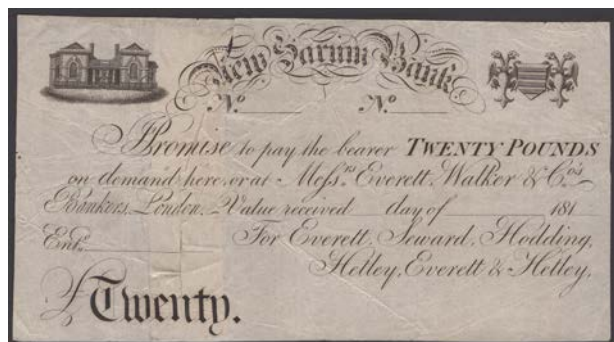 New Sarum Bank
No. No.
I Promise to pay the bearer TWENTY POUNDS
on demand here, or at Messrs. Everett, Walker & Co's
Bankers, London. Value received day of 181
Entd. For Everett, Seward, Hodding,
Hetley, Everett & Hetley.
£ Twenty.